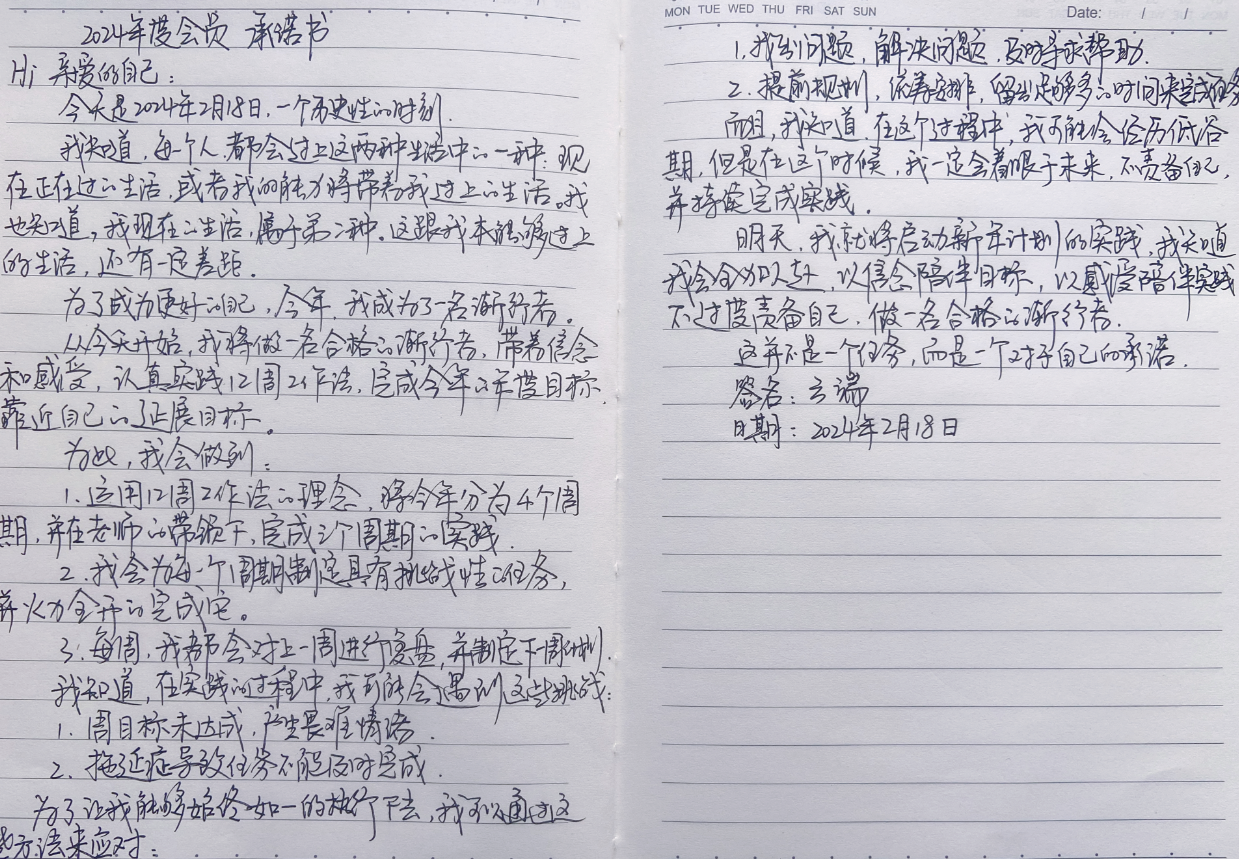 2024年度会员 承诺书
Hi 亲爱的自己：
今天是2024年2月18日，一个历史性的时刻．
我知道，每个人，都会过上这两种生活中的一种：现
在正在过的生活，或者我的能力将带着我过上的生活。我
也知道，我现在的生活，属于第二种。这跟我本能够过上
的生活，还有一定差距。
为了成为更好的自己，今年，我成为了一名渐行者。
从今天开始，我将做一名合格的渐行者，带着信念
和感受，认真实践12周工作法，完成今年的年度目标，
靠近自己的延展目标。
为此，我会做到：
1. 运用12周工作法的理念，将今年分为4个周
期，并在老师的带领下，完成三个周期的实践．
2. 我会为每一个周期制定具有挑战性的任务，
并火力全开的完成它。
3. 每周，我都会对上一周进行复盘，并制定下一周计划．
我知道，在实践的过程中，我可能会遇到这些挑战：
1. 周目标未达成，产生畏难情绪．
2. 拖延症导致任务不能及时完成．
为了让我能够始终如一的执行下去，我可以通过这
些方法来应对：
MON TUE WED THU FRI SAT SUN Date: / /
1. 找出问题，解决问题，及时寻求帮助．
2. 提前规划，统筹安排，留出足够多的时间来完成任务
而且，我知道，在这个过程中，我可能会经历低谷
期，但是在这个时候，我一定会着眼于未来，不责备自己，
并持续完成实践．
明天，我就将启动新年计划的实践，我知道
我会全力以赴，以信念陪伴目标，以感受陪伴实践
不过度责备自己，做一名合格的渐行者．
这并不是一个任务，而是一个对于自己的承诺．
签名：云端
日期：2024年2月18日